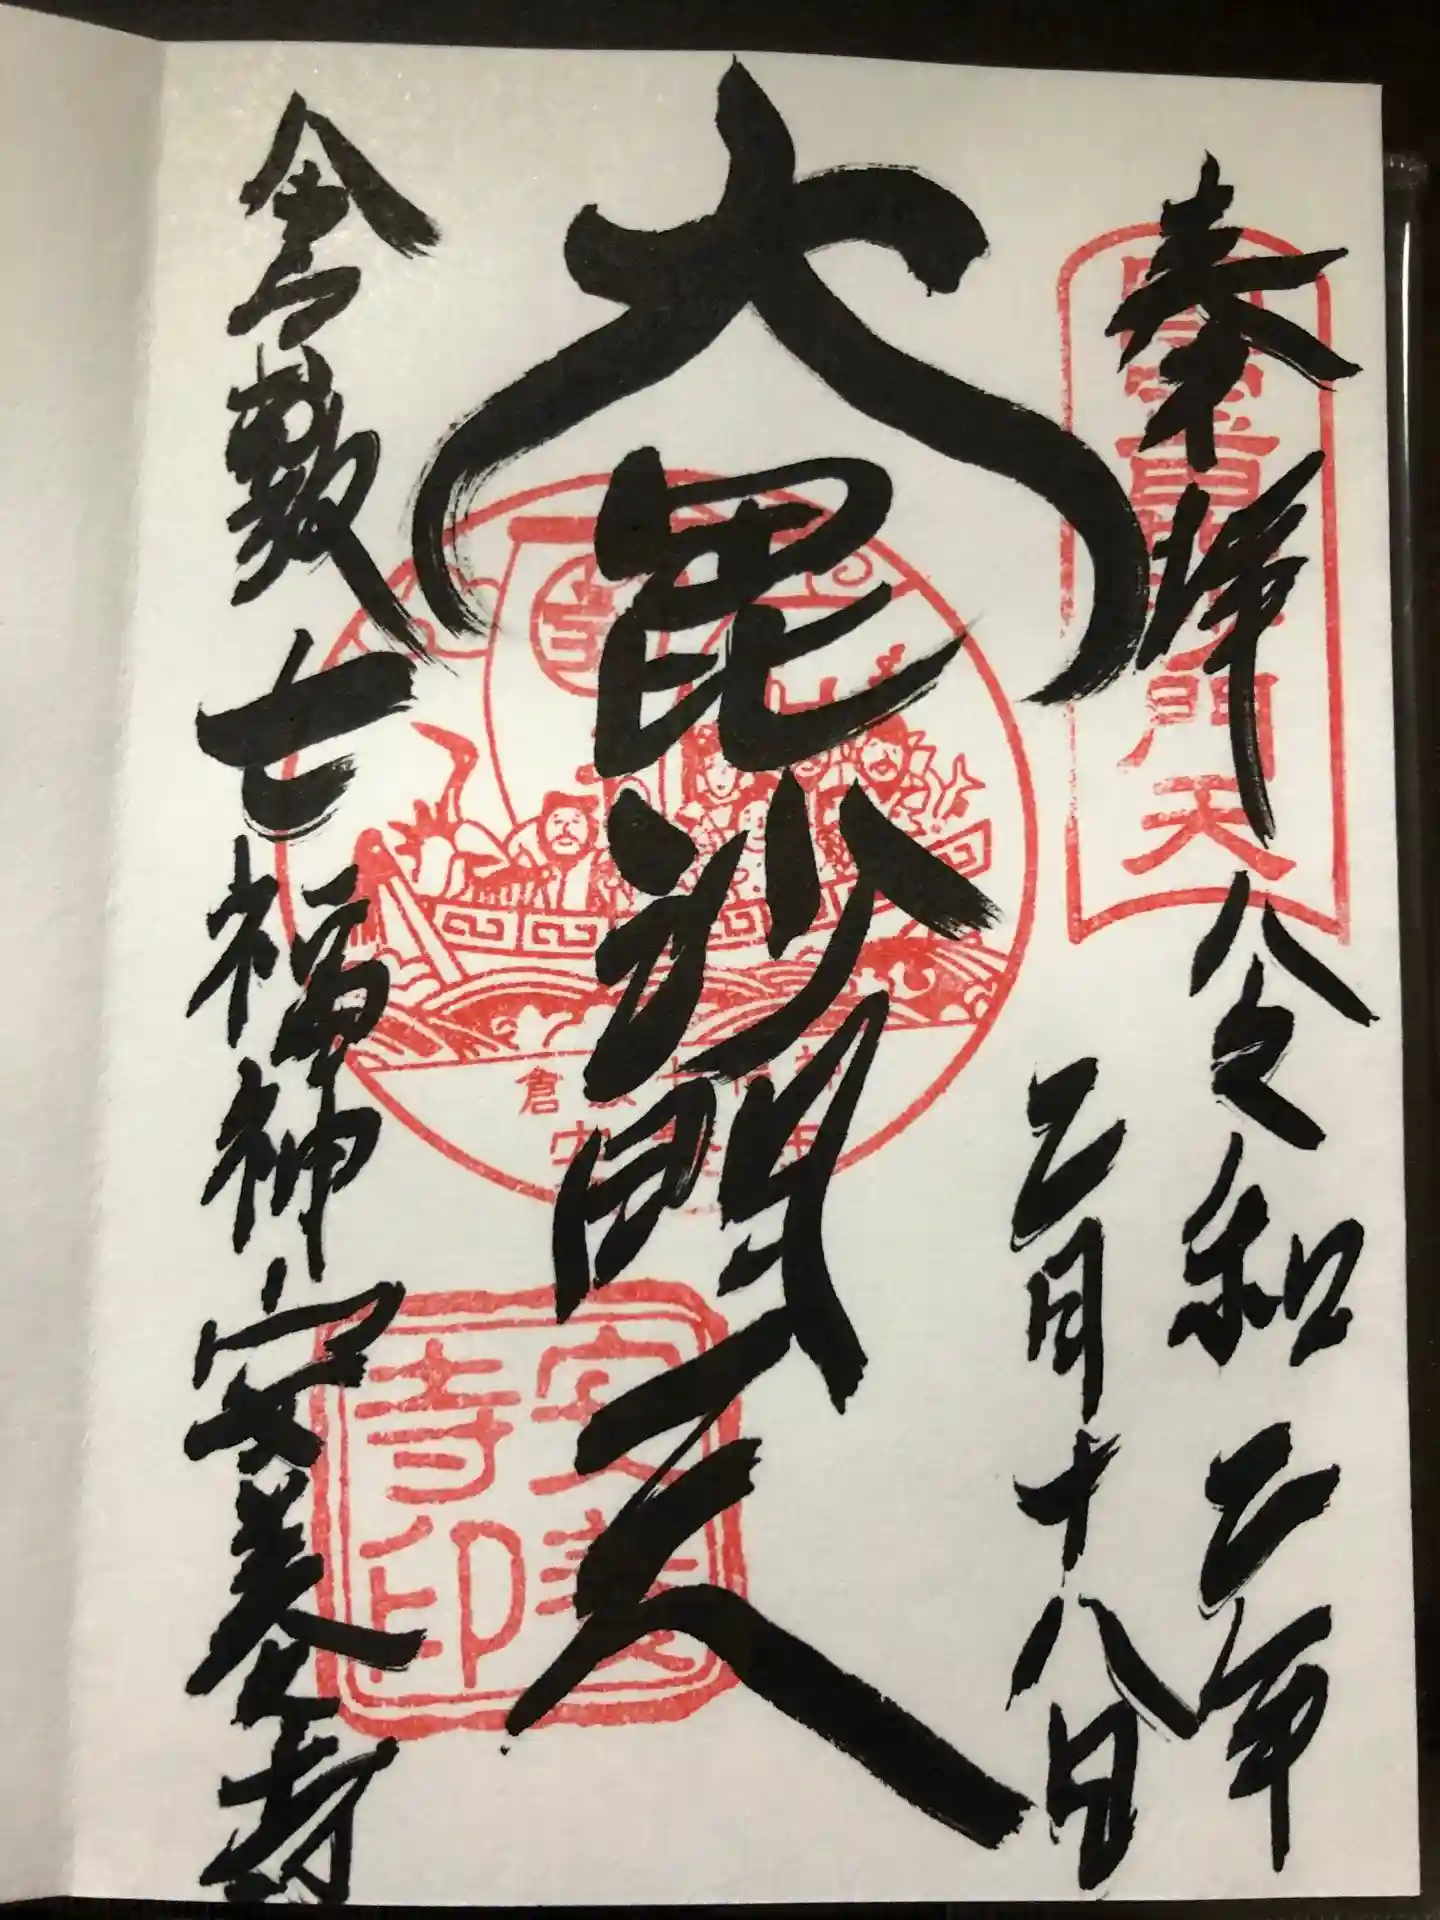 奉拝
令和二年
二月十八日
大毘沙門天
倉敷七福神安養寺
門天
倉敷七福神
安養寺
安養寺印